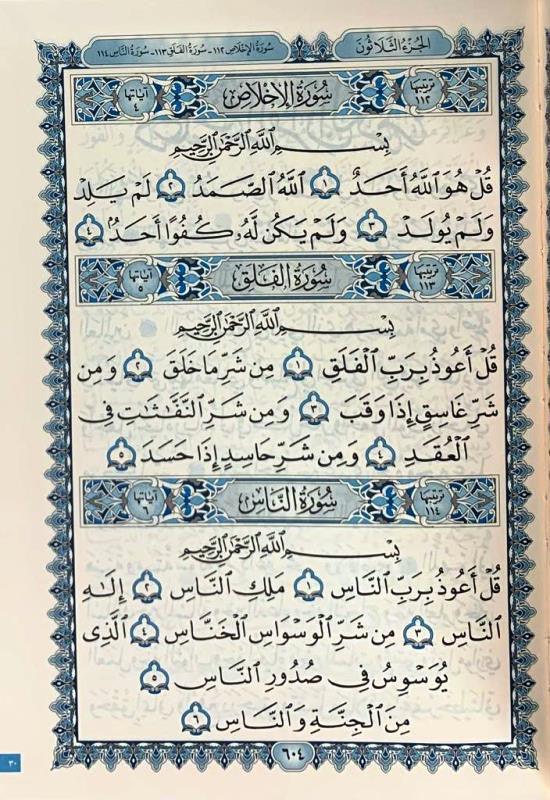 الجُزْءُ الثَّلَاثُونَ
سُورَةُ الإِخْلَاصِ ١١٢ - سُورَةُ الفَلَقِ ١١٣ - سُورَةُ النَّاسِ ١١٤
ترتيبها ١١٢ سُورَةُ الإِخْلَاصِ آياتها ٤
بِسْمِ ٱللَّهِ ٱلرَّحْمَٰنِ ٱلرَّحِيمِ
قُلْ هُوَ ٱللَّهُ أَحَدٌ ١ ٱللَّهُ ٱلصَّمَدُ ٢ لَمْ يَلِدْ
وَلَمْ يُولَدْ ٣ وَلَمْ يَكُن لَّهُۥ كُفُوًا أَحَدٌۢ ٤
ترتيبها ١١٣ سُورَةُ الفَلَقِ آياتها ٥
بِسْمِ ٱللَّهِ ٱلرَّحْمَٰنِ ٱلرَّحِيمِ
قُلْ أَعُوذُ بِرَبِّ ٱلْفَلَقِ ١ مِن شَرِّ مَا خَلَقَ ٢ وَمِن
شَرِّ غَاسِقٍ إِذَا وَقَبَ ٣ وَمِن شَرِّ ٱلنَّفَّٰثَٰتِ فِى
ٱلْعُقَدِ ٤ وَمِن شَرِّ حَاسِدٍ إِذَا حَسَدَ ٥
ترتيبها ١١٤ سُورَةُ النَّاسِ آياتها ٦
بِسْمِ ٱللَّهِ ٱلرَّحْمَٰنِ ٱلرَّحِيمِ
قُلْ أَعُوذُ بِرَبِّ ٱلنَّاسِ ١ مَلِكِ ٱلنَّاسِ ٢ إِلَٰهِ
ٱلنَّاسِ ٣ مِن شَرِّ ٱلْوَسْوَاسِ ٱلْخَنَّاسِ ٤ ٱلَّذِى
يُوَسْوِسُ فِى صُدُورِ ٱلنَّاسِ ٥
مِنَ ٱلْجِنَّةِ وَٱلنَّاسِ ٦
٦٠٤
٣٠